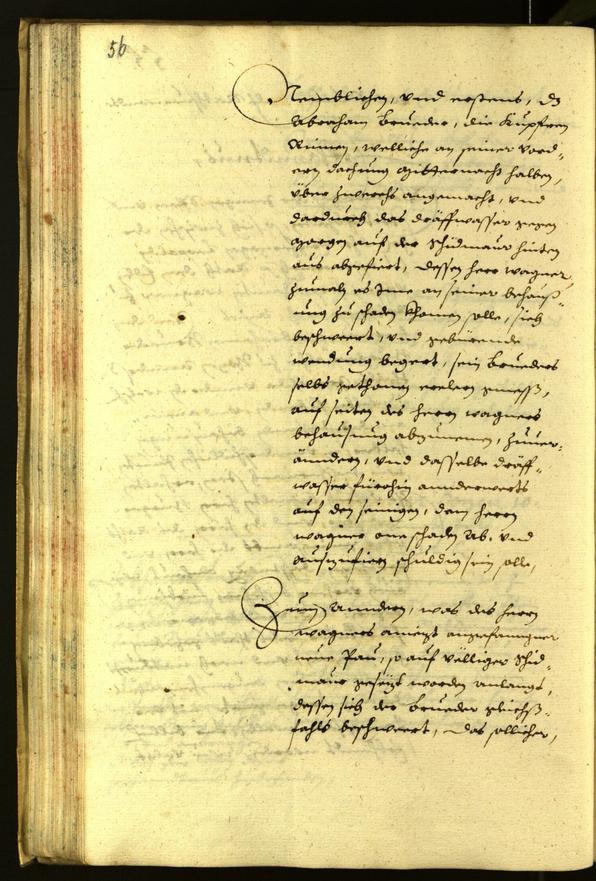 56
Nemblichen, vnd erstens, dz
Abraham Brueder, die Kupfren
Rinnen, welliche an seiner vord„
ern dachung Mitternacht halben,
über zwerchs angemacht, vnd
dardurch das draffwasser gegen
Morgen auf der schidmaur hinten
aus abgefiert, dessen herr wagner
zumaln es Ime an seiner behauß„
ung zu schaden khomen solle, sich
beschwert, vnd gebürende
wendung begert, sein Brueders
selbs gethonen
auf seiten des herrn wagners
behausung abzunemen, zuuer„
änndern, vnd dasselbe dräff„
wasser fürohin annderwerts
auf den seinigen, dem herrn
wagner one schaden ab, vnd
auszufiern schuldig sein solle,
Zum Anndern, was des herrn
wagners aniezt angefanngner
neue Pau, so auf völliger schid„
maur gesezt worden anlangt,
dessen sich der Brueder gleichß„
fahls beschwert, das sollicher,